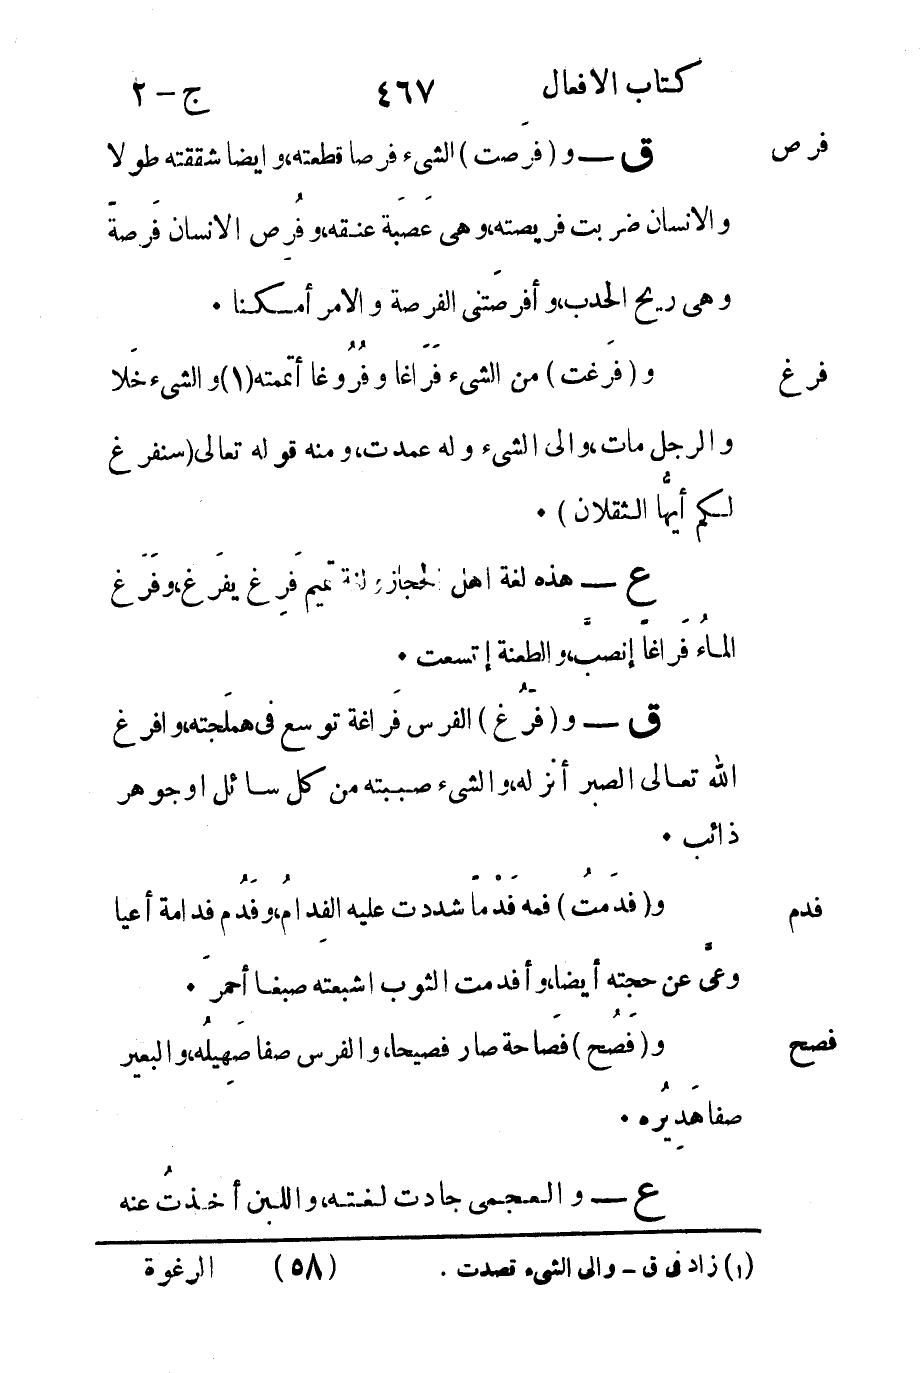 كتاب الافعال ٤٦٧ ج – ٢
فرص ق — و (فرَصت) الشىء فرصا قطعته، و ايضا شققته طولا
و الانسان ضربت فريصته، و هى عَصَبَة عنقه، و فُرِص الانسان فَرصةً
و هى ريح الحدب، و أفرصَتنى الفرصة و الامر أمكننا •
فرغ و (فرَغت) من الشىء فَرَاغا و فُرُوغا أتممته (١) و الشىء خَلا
و الرجل مات، و الى الشىء و له عمدت، و منه قوله تعالى (سنفرغ
لكم أيُّها الثقلان) •
ع — هذه لغة اهل الحجاز و لغة تميم فَرِغ يفرَغ، و فَرَغ
الماءُ فَراغاً إنصبَّ، و الطعنة إتسعت •
ق — و (فرُغ) الفرس فَراغة توسع فى هملَجته، و افرغ
الله تعالى الصبر أنزله، و الشىء صببته من كل سائل او جوهر
ذائب •
فدم و (فدَمتُ) فمه فَدْماً شددت عليه الفِدامُ، و فَدُم فدامة أعيا
و عىَّ عن حجته أيضا، و أفدمت الثوب اشبعته صبغا أحمرَ •
فصح و (فَصُح) فصَاحة صار فصيحا، و الفرس صفا صَهِيلُه، و البعير
صفا هَدِيرُه •
ع — و العجمى جادت لغته، و اللبن أخذتُ عنه
(١) زاد فى ق – والى الشىء قصدت . (٥٨) الرغوة